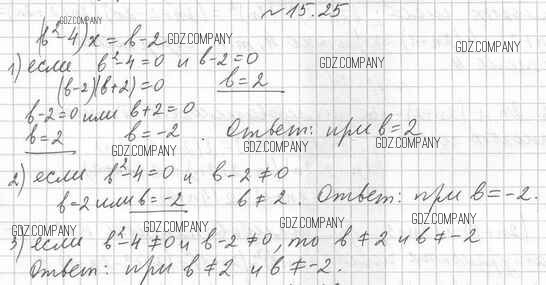 №15.25
(b²-4)x = b-2
1) если b²-4=0 и b-2=0
(b-2)(b+2)=0 b=2
b-2=0 или b+2=0
b=2 b=-2. Ответ: при b=2
2) если b²-4=0 и b-2≠0
b=2 или b=-2 b≠2. Ответ: при b=-2.
3) если b²-4≠0 и b-2≠0, то b≠2 и b≠-2
Ответ: при b≠2 и b≠-2.
GDZ.COMPANY
GDZ.COMPANY
GDZ.COMPANY
GDZ.COMPANY
GDZ.COMPANY
GDZ.COMPANY
GDZ.COMPANY
GDZ.COMPANY
GDZ.COMPANY
GDZ.COMPANY
GDZ.COMPANY